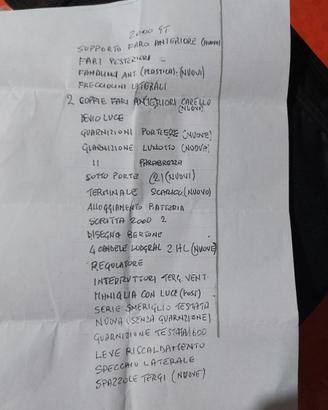 2000 GT
SUPPORTO FARO ANTERIORE (NUOVO)
FARI POSTERIORI
FANALINI ANT. (PLASTICA). (NUOVI)
FRECCIOLINI LATERALI
2 COPPIE FARI ANTERIORI CARELLO
(NUOVI)
DEVIO LUCE
GUARNIZIONI PORTIERE (NUOVE)
GUARNIZIONE LUNOTTO (NUOVA)
" PARABREZZA
SOTTO PORTE (2) (NUOVI)
TERMINALE SCARICO (NUOVO)
ALLOGGIAMENTO BATTERIA
SCRITTA 2000 2
DISEGNO BERTONE
4 CANDELE LODGRAL 2 HL (NUOVE)
REGOLATORE
INTERRUTTORI TERG. VENT.
MANIGLIA CON LUCE (POST)
SERIE SMERIGLIO TESTATA
NUOVA (SENZA GUARNIZIONE)
GUARNIZIONE TESTATA 1600
LEVE RISCALDAMENTO
SPECCHIO LATERALE
SPAZZOLE TERGI (NUOVE)